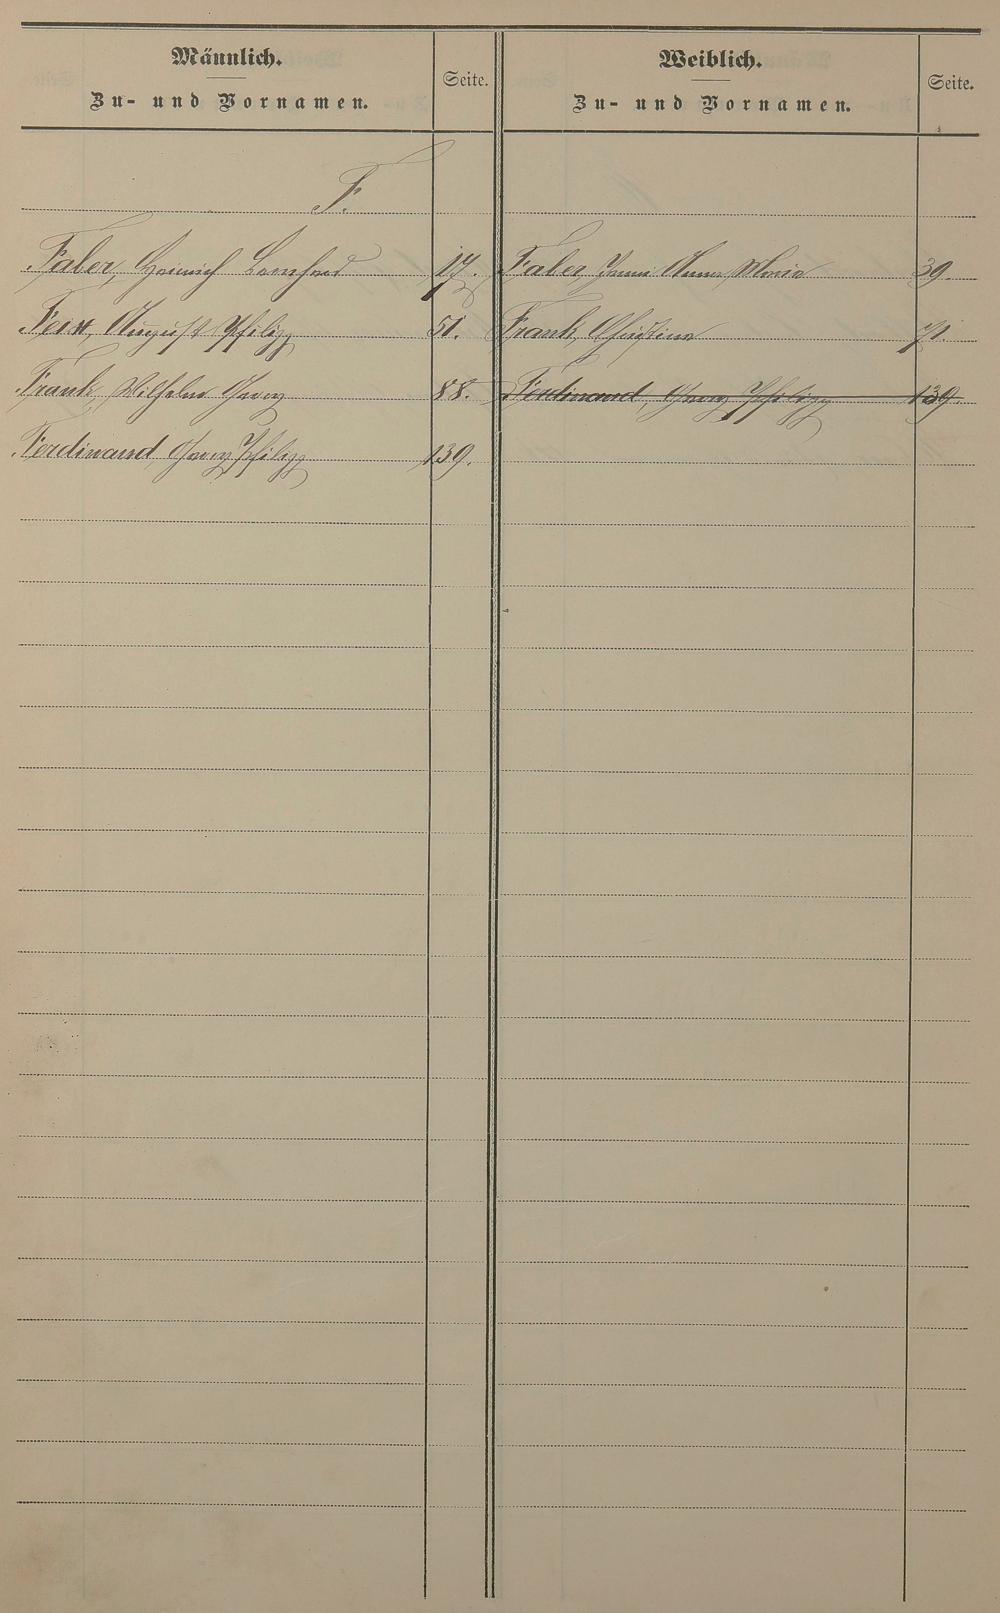 Männlich.
Zu- und Vornamen.
Seite.
Weiblich.
Zu- und Vornamen.
Seite.
F.
Faber, Heinrich Bernhard 17.
Faber, Anna Maria 39.
August Philipp 51.
Frank, Christina 71.
Frank, Wilhelm Georg 88.
Ferdinand, Georg Philipp 139.
Ferdinand, Georg Philipp 139.